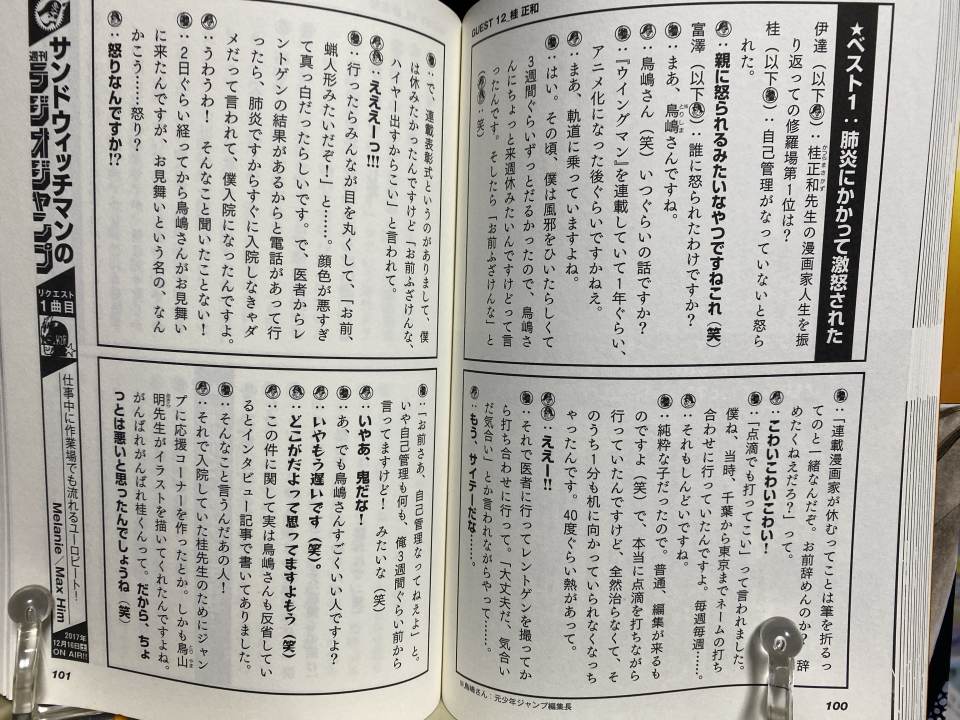 GUEST 12_桂 正和
★ベスト1：肺炎にかかって激怒された
伊達（以下）：桂正和先生の漫画家人生を振
かつらまさかず
り返っての修羅場第1位は？
桂（以下）：自己管理がなっていないと怒ら
れた。
：親に怒られるみたいなやつですねこれ（笑）
富澤（以下）：誰に怒られたわけですか？
：まあ、鳥嶋さんですね。
とりしま
：鳥嶋さん（笑）いつぐらいの話ですか？
：『ウイングマン』を連載していて1年ぐらい、
アニメ化になった後ぐらいですかねえ。
：まあ、軌道に乗っていますよね。
：はい。その頃、僕は風邪をひいたらしくて
3週間ぐらいずっとだるかったので、鳥嶋さ
んにちょっと来週休みたいんですけどって言
ったんです。そしたら「お前ふざけんな」と
（：笑）
：「連載漫画家が休むってことは筆を折るっ
てのと一緒なんだぞ。お前辞めんのか？　辞
めたくねえだろ？」って。
：こわいこわいこわい！
：「点滴でも打ってこい」って言われました。
僕ね、当時、千葉から東京までネームの打ち
合わせに行っていたんですよ。毎週毎週……。
：それもしんどいですね。
：純粋な子だったので。普通、編集が来るも
のですよ（笑）で、本当に点滴を打ちながら
行っていたんですけど、全然治らなくて、そ
のうち1分も机に向かっていられなくなっち
ゃったんです。40度ぐらい熱があって。
：ええ!!
：それで医者に行ってレントゲンを撮ってか
ら打ち合わせに行って。「大丈夫だ、気合い
だ気合い」とか言われながらやって……。
：もう、サイテーだな……。
※鳥嶋さん：元少年ジャンプ編集長
100
：で、連載表彰式というのがありまして、僕
は休みたかったんですけど「お前ふざけんな、
ハイヤー出すからこい」と言われて。
：えええーっ!!!
：行ったらみんなが目を丸くして、「お前、
蝋人形みたいだぞ！」と……。顔色が悪すぎ
て真っ白だったらしいです。で、医者からレ
ントゲンの結果があるからと電話があって行
ったら、肺炎ですからすぐに入院しなきゃダ
メだって言われて、僕入院になったんですよ。
：うわうわ！　そんなこと聞いたことない！
：2日ぐらい経ってから鳥嶋さんがお見舞い
に来たんですが、お見舞いという名の、なん
かこう……怒り？
：怒りなんですか!?
：「お前さあ、自己管理なってねえよ」と。
いや自己管理も何も、俺3週間ぐらい前から
言ってますけど！　みたいな（笑）
：いやあ、鬼だな！
：あ、でも鳥嶋さんすごくいい人ですよ？
：いやもう遅いです（笑）。
：どこがだよって思ってますよもう（笑）
：この件に関して実は鳥嶋さんも反省してい
るとインタビュー記事で書いてありました。
：そんなこと言うんだあの人！
：それで入院していた桂先生のためにジャン
プに応援コーナーを作ったとか。しかも鳥山
とりやま
明先生がイラストを描いてくれたんですよね。
あきら
がんばれがんばれ桂くんって。だから、ちょ
っとは悪いと思ったんでしょうね（笑）
サンドウィッチマンの
週刊ラジオジャンプ
リクエスト
1曲目
仕事中に作業場でも流れるユーロビート！
Melanie／Max Him
2017年
12月16日
ON AIR!!
101